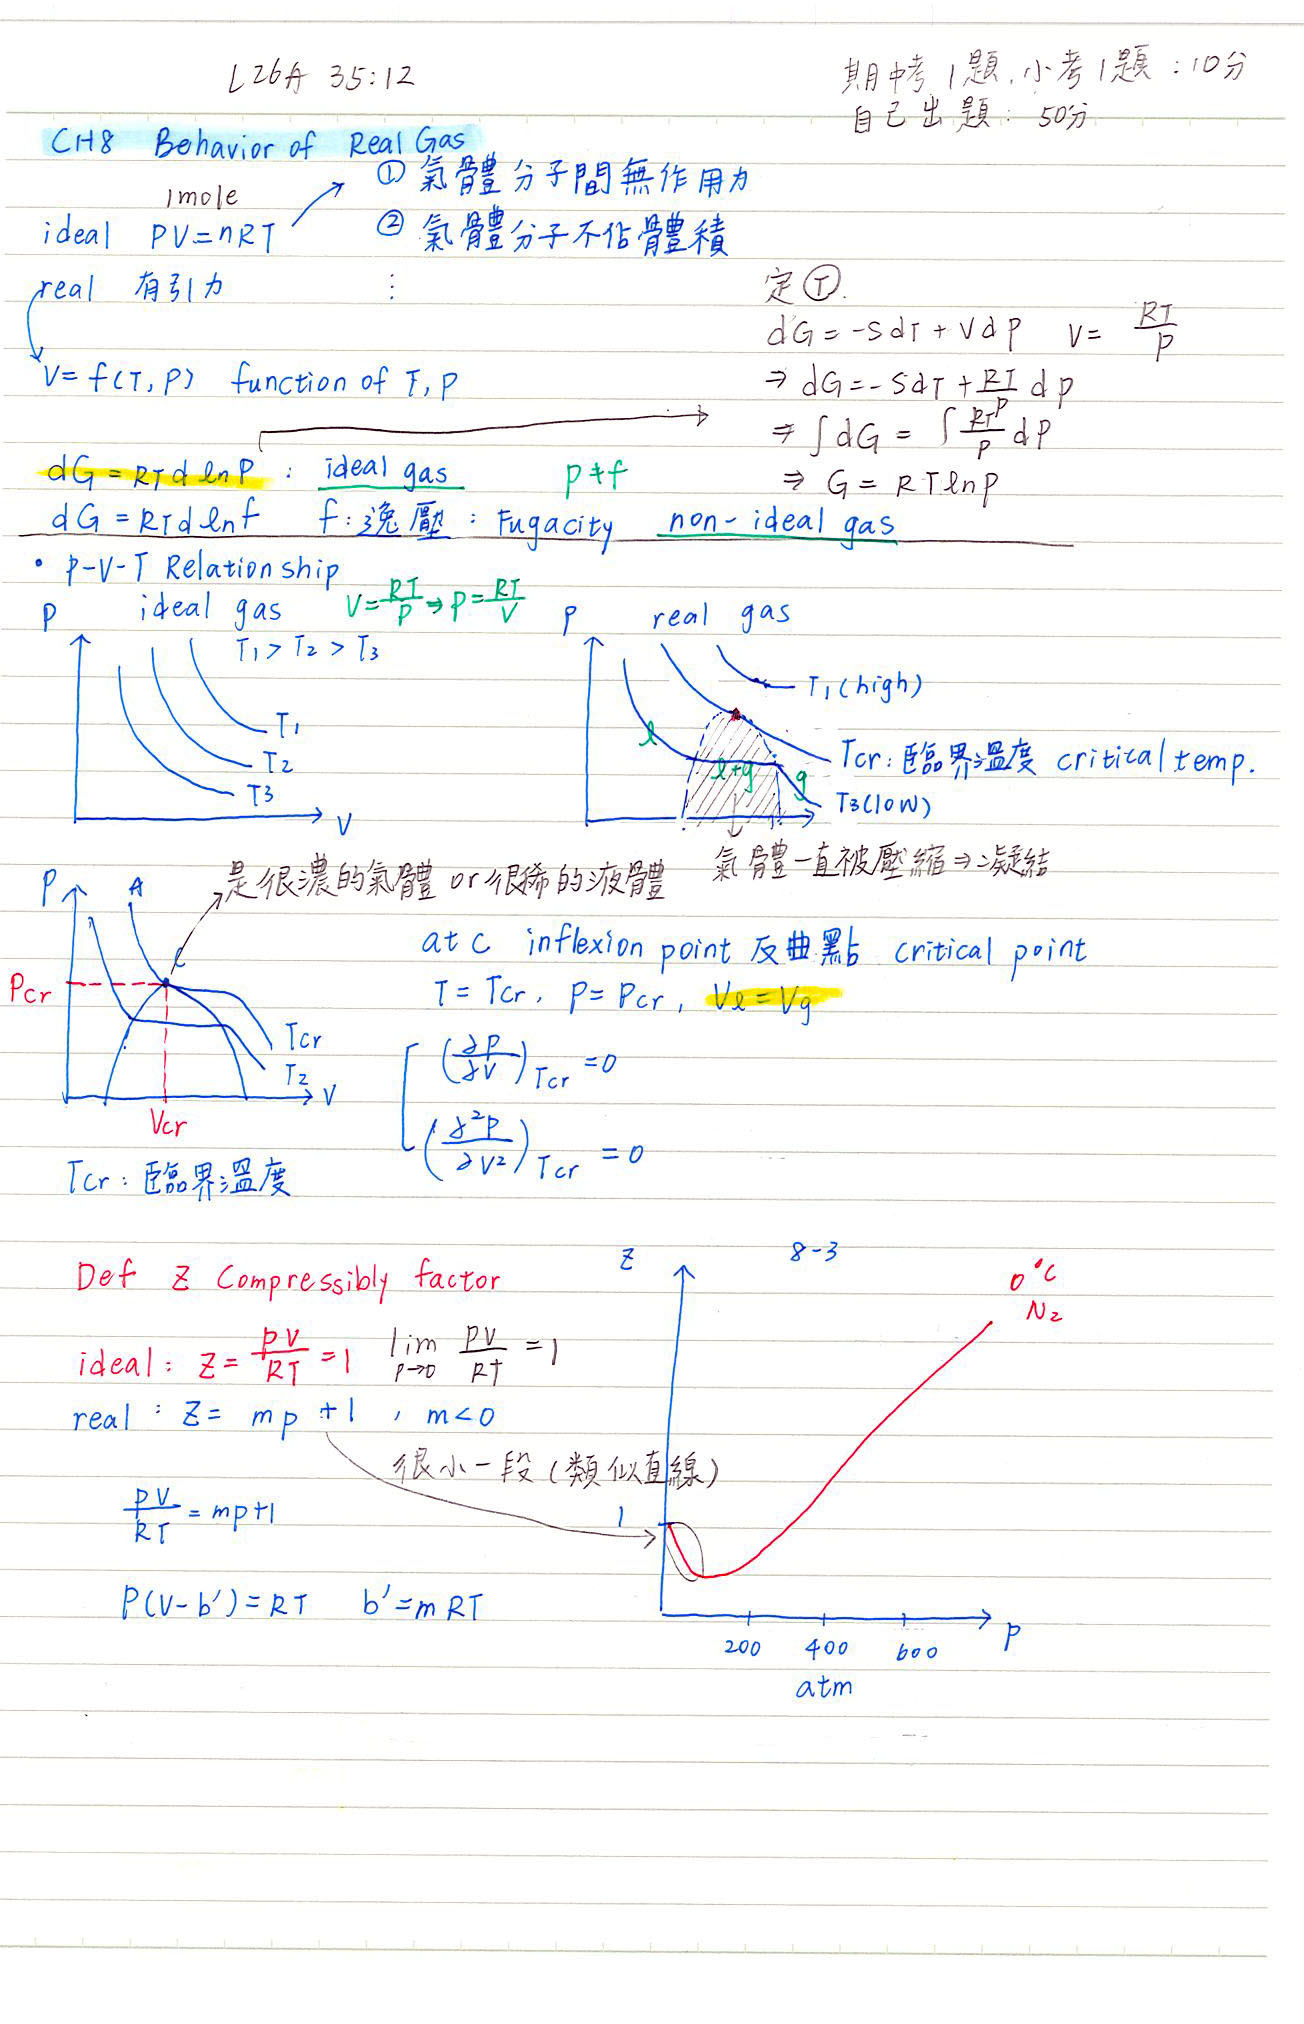 L26A 35:12
期中考1題,小考1題:10分
自己出題:50分
CH8 Behavior of Real Gas
1mole
① 氣體分子間無作用力
ideal PV=nRT
② 氣體分子不佔體積
real 有引力
⋮
定Ⓣ.
dG=-SdT+VdP V= RT/P
V=f(T,P) function of T,P
⇒ dG=-SdT+RT/P dP
⇒ ∫dG = ∫RT/P dP
⇒ G= RTlnP
dG=RTdlnP : ideal gas P≠f
dG=RTdlnf f:逸壓:Fugacity non-ideal gas
• P-V-T Relationship
ideal gas V=RT/P⇒P=RT/V
T1>T2>T3
P
T1
T2
T3
V
real gas
P
T1(high)
Tcr:臨界溫度 critical temp.
T3(low)
l
l+g
g
氣體一直被壓縮⇒凝結
是很濃的氣體 or 很稀的液體
P
A
C
Pcr
Tcr
T2
V
Vcr
Tcr:臨界溫度
at C inflexion point 反曲點 critical point
T=Tcr, P=Pcr, Vl=Vg
(∂P/∂V)Tcr=0
(∂²P/∂V²)Tcr=0
Def Z Compressibly factor
ideal: Z=PV/RT=1 lim P→0 PV/RT=1
real : Z= mp+1 , m<0
很小一段(類似直線)
PV/RT=mp+1
P(V-b')=RT b'=mRT
Z
8-3
0°C
N2
1
200 400 600
P
atm